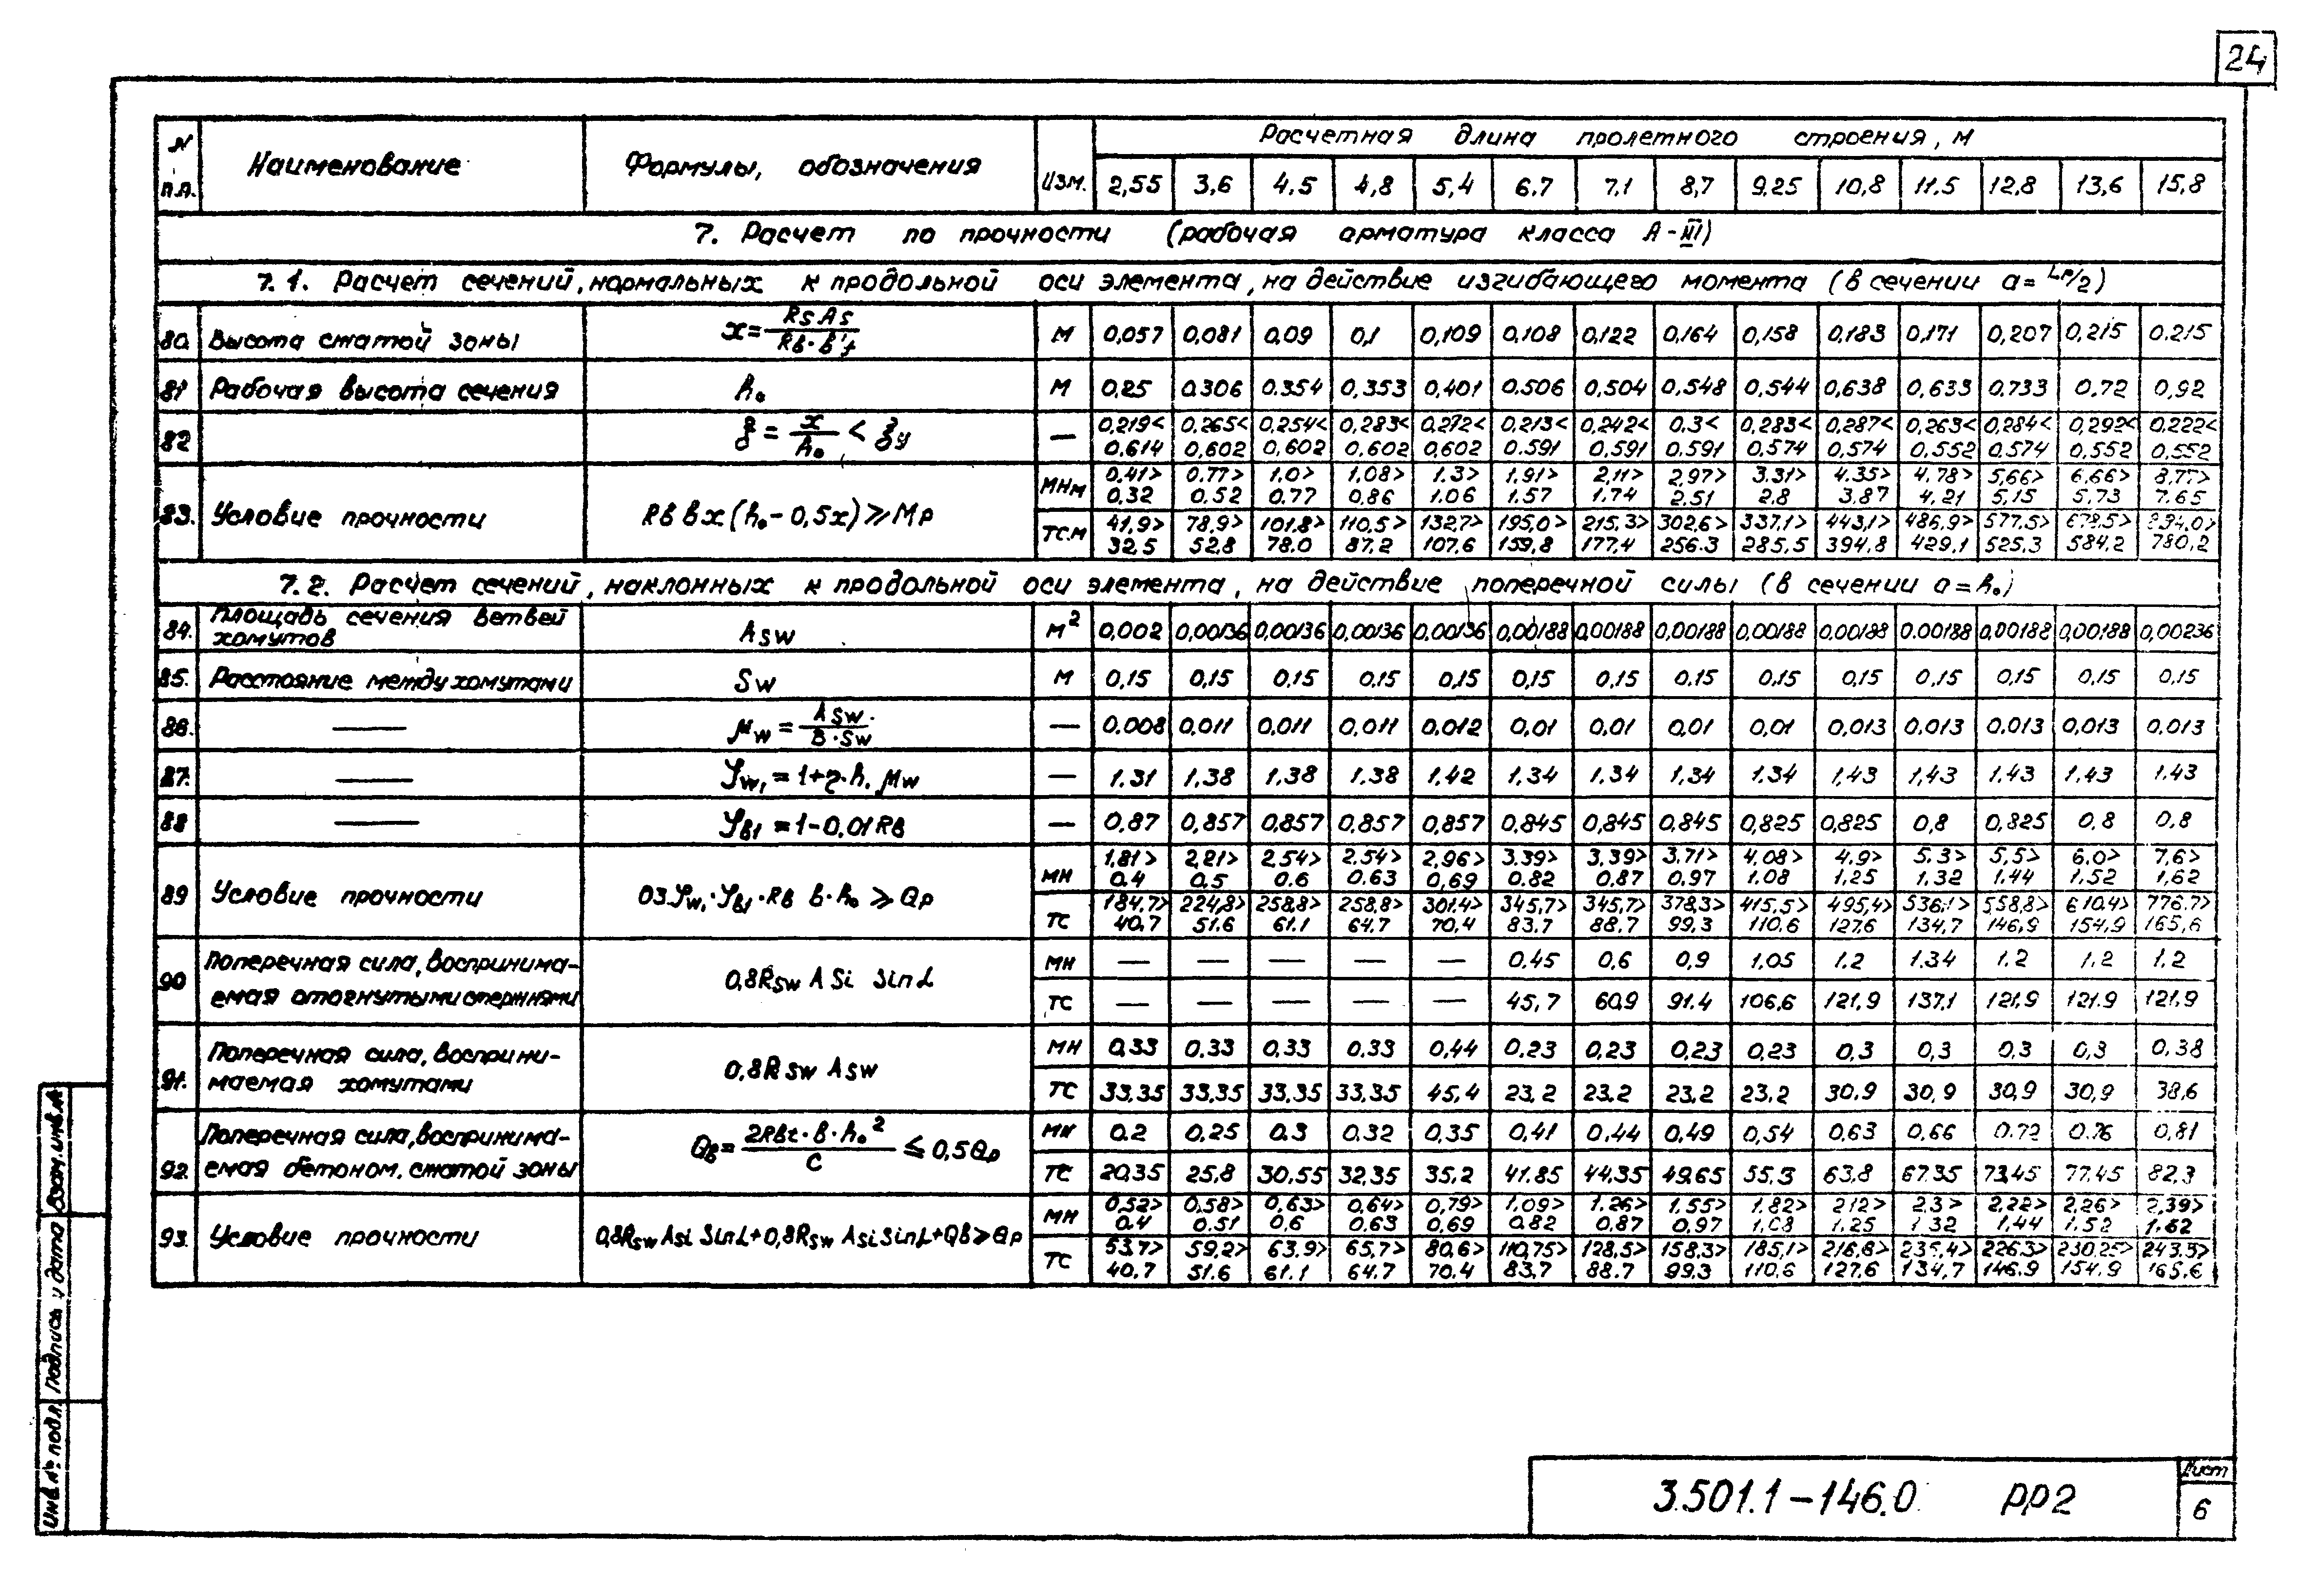 24
N п.п. Наименование Формулы, обозначения Изм. Расчетная длина пролетного строения, м
2,55 3,6 4,5 4,8 5,4 6.7 7,1 8,7 9,25 10,8 11.5 12,8 13,6 15,8
7. Расчет по прочности (рабочая арматура класса А-III)
7.1. Расчет сечений, нормальных к продольной оси элемента, на действие изгибающего момента (в сечении a=Lp/2)
80. Высота сжатой зоны x=RsAs/Rb·b'f м 0,057 0,081 0,09 0,1 0,109 0,108 0,122 0,164 0,158 0,183 0,171 0,207 0,215 0.215
81 Рабочая высота сечения h₀ м 0,25 0.306 0.354 0,353 0,401 0,506 0,504 0,548 0,544 0,638 0,633 0,733 0.72 0,92
82 ξ=x/h₀<ξy — 0,219< 0,265< 0,254< 0,283< 0,272< 0,213< 0,242< 0,3< 0,283< 0,287< 0,263< 0,284< 0,292< 0,222<
0.614 0,602 0,602 0,602 0,602 0.591 0,591 0,591 0,574 0,574 0,552 0,574 0,552 0,552
83. Условие прочности Rb b x (h₀-0,5x)⩾Mp МНм 0.41> 0.77> 1.0> 1,08> 1.3> 1,91> 2,11> 2,97> 3.31> 4.35> 4.78> 5,66> 6,66> 8,77>
0.32 0.52 0.77 0,86 1.06 1.57 1.74 2.51 2.8 3,87 4,21 5,15 5,73 7.65
тс.м 41,9> 78,9> 101,8> 110,5> 132,7> 195,0> 215,3> 302,6> 337,1> 443,1> 486,9> 577,5>
32,5 52,8 78.0 87,2 107,6 159,8 177,4 256.3 285,5 394,8 429,1 525,3 584,2 780,2
7.2. Расчет сечений, наклонных к продольной оси элемента, на действие поперечной силы (в сечении a=h₀)
84. Площадь сечения ветвей
хомутов Asw м² 0,002 0,00136 0,00136 0,00136 0,00136 0,00188 0,00188 0,00188 0,00188 0,00188 0.00188 0,00188 0,00188 0,00236
85. Расстояние между хомутами Sw м 0,15 0,15 0,15 0,15 0,15 0,15 0,15 0.15 0.15 0,15 0,15 0,15 0,15 0,15
86. — μw=Asw/b·Sw — 0.008 0,011 0,011 0,011 0,012 0,01 0,01 0,01 0,01 0,013 0,013 0,013 0,013 0,013
87. — φw₁=1+η·h₁ μw — 1.31 1,38 1,38 1.38 1.42 1,34 1.34 1,34 1.34 1,43 1,43 1.43 1,43 1.43
88 — φb1=1-0,01Rb — 0,87 0,857 0,857 0,857 0,857 0,845 0,845 0,845 0,825 0,825 0,8 0,825 0,8 0,8
89 Условие прочности 03φw₁·φb1·Rb b·h₀⩾Qp МН 1,81> 2,21> 2,54> 2.54> 2,96> 3.39> 3.39> 3.71> 4,08> 4.9> 5.3> 5,5> 6,0> 7,6>
0.4 0.5 0.6 0.63 0,69 0.82 0,87 0,97 1.08 1,25 1.32 1.44 1,52 1,62
тс 184,7> 224,8> 258,8> 258,8> 301.4> 345,7> 345,7> 378,3> 415,5> 495,4> 536,1> 558,8> 610.4> 776.7>
40,7 51.6 61.1 64.7 70,4 83.7 88.7 99,3 110,6 127.6 134,7 146,9 154,9 165,6
90 Поперечная сила, воспринима-
емая отогнутыми стержнями 0,8Rsw Asi Sinα МН — — — — — 0.45 0,6 0,9 1,05 1.2 1.34 1.2 1.2 1.2
тс — — — — — 45,7 60.9 91.4 106,6 121,9 137,1 121,9 121.9 121.9
91. Поперечная сила, восприни-
маемая хомутами 0,8Rsw Asw МН 0.33 0.33 0,33 0.33 0,44 0.23 0,23 0,23 0,23 0,3 0,3 0,3 0,3 0.38
тс 33,35 33,35 33,35 33,35 45,4 23,2 23,2 23,2 23,2 30.9 30,9 30,9 30,9 38,6
92. Поперечная сила, воспринима-
емая бетоном. сжатой зоны Qb=2Rbt·b·h₀²/c⩽0,5Qp МН 0.2 0,25 0.3 0.32 0,35 0,41 0,44 0,49 0,54 0,63 0,66 0.72 0.76 0,81
тс 20,35 25,8 30,55 32,35 35,2 41.85 44,35 49,65 55,3 63,8 67.35 73,45 77,45 82,3
93. Условие прочности 0,8Rsw Asi Sinα+0,8Rsw Asi Sinα+Qb⩾Qp МН 0,52> 0,58> 0,63> 0,64> 0,79> 1.09> 1.26> 1.55> 1.82> 2,12> 2.3> 2,22> 2,26> 2,39>
0.4 0.51 0,6 0.63 0,69 0.82 0,87 0.97 1.08 1.25 1.32 1,44 1.52 1.62
тс 53.7> 59,2> 63.9> 65,7> 80,6> 110,75> 128,5> 158,3> 185,1> 216,8> 235,4> 226,3> 230,25> 243.3>
40.7 51.6 61.1 64.7 70.4 83,7 88.7 99.3 110,6 127,6 134,7 146.9 154.9 165.6
Инв. № подл. Подпись и дата Взам. инв. №
3.501.1-146.0 РР2
Лист
6